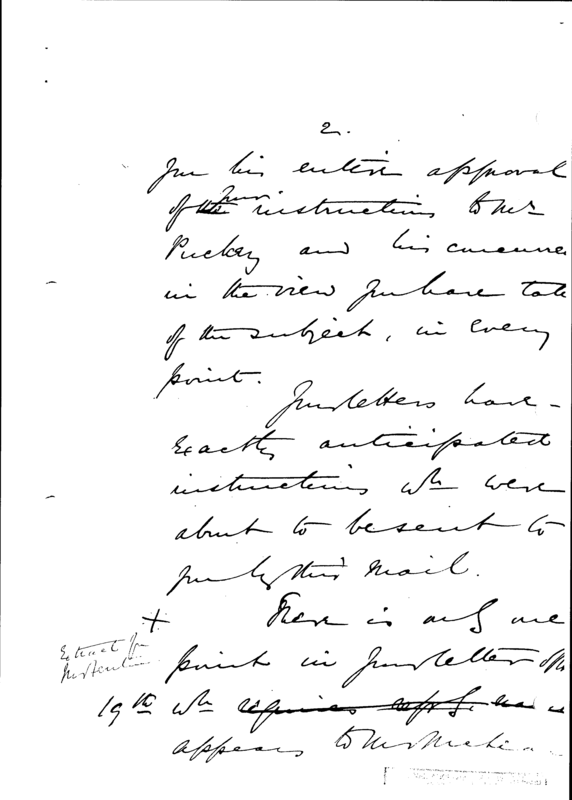 2.
you his entire approval
of ~~the~~ your instructions to Mr
Puckey and his concurrence
in the view you have take
of the subject, in every
point.
Your letters have
exactly anticipated
instructions wh were
about to be sent to
you by this Mail.
+ There is only one
Extract for
point in your letter of the
19th wh ~~requires reply~~
appears to Mr